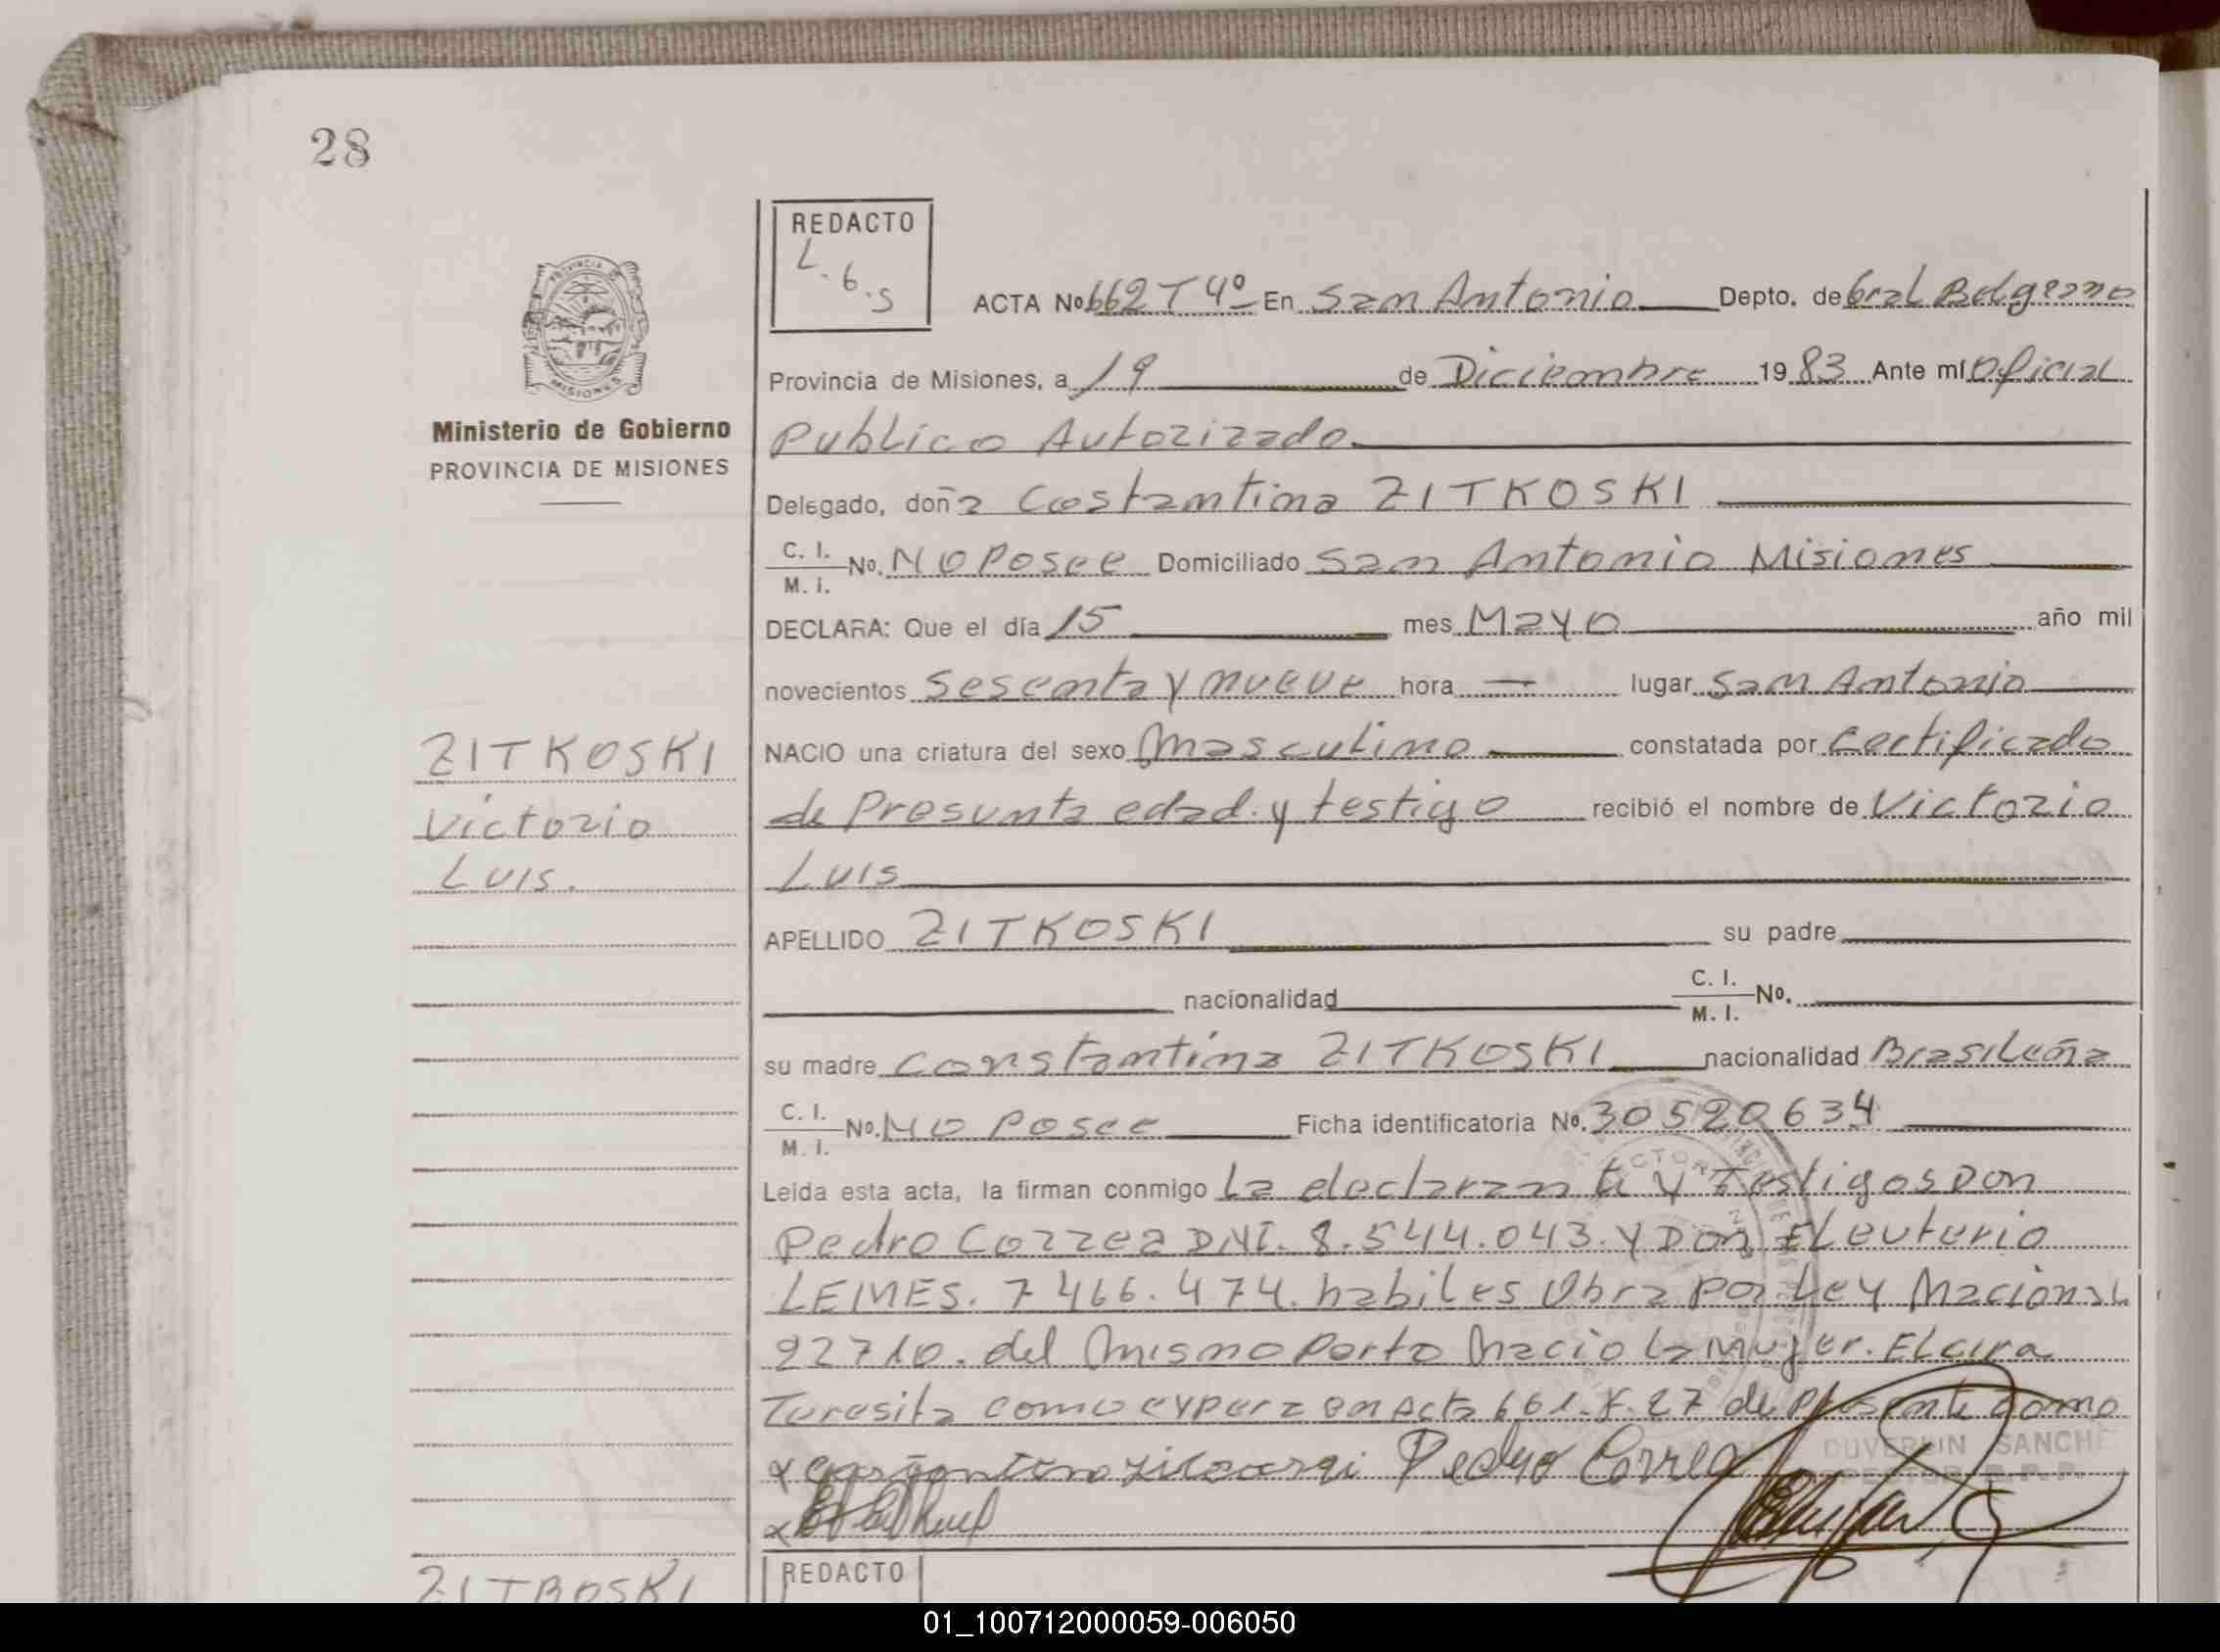 28
REDACTO
L.G.S
ACTA No 662 T 4º En San Antonio Depto. de Gral Belgrano
PROVINCIA DE
MISIONES
Provincia de Misiones, a 19 de Diciembre 1983 Ante mí Oficial
Ministerio de Gobierno
Publico Autorizado
PROVINCIA DE MISIONES
Delegado, doña Costantina ZITKOSKI
C. I.
M. I. No. No Posee Domiciliado San Antonio Misiones
DECLARA: Que el día 15 mes Mayo año mil
novecientos sesenta y nueve hora — lugar San Antonio
ZITKOSKI
Victorio
Luis.
NACIO una criatura del sexo Masculino constatada por Certificado
de Presunta edad. y testigo recibió el nombre de Victorio
Luis
APELLIDO ZITKOSKI su padre
nacionalidad C. I.
M. I. No.
su madre Constantina ZITKOSKI nacionalidad Brasileña
C. I.
M. I. No. No Posee Ficha identificatoria No. 30520634
Leída esta acta, la firman conmigo La declarante y Testigos Don
Pedro Correa DNI. 8.544.043. y Don Eleuterio
LEMES. 7466.474. habiles Obra por Ley Nacional
22710. del mismo Parto Nacio la Mujer. Elcira
Teresita como expera en Acta 661. F. 27 de Presente Tomo
x Pedro Correa
x
DUVERLIN SANCHE
REDACTO
ZITBOSKI
01_100712000059-006050